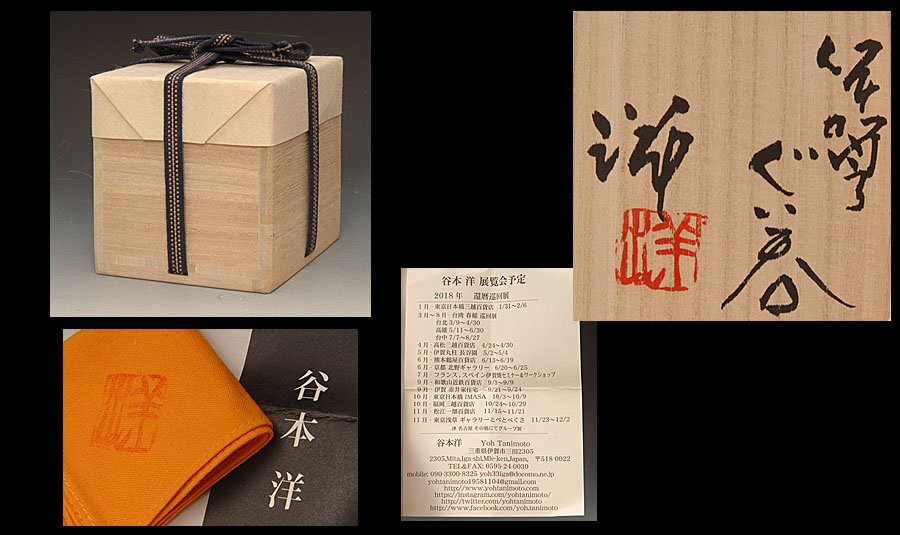 伊賀
ぐい呑
洋
洋
洋
谷本 洋
谷本 洋 展覧会予定
2018年 還暦巡回展
1月・東京日本橋三越百貨店 1/31~2/6
3月~8月・台湾 春稲 巡回展
台北 3/9~4/30
高雄 5/11~6/30
台中 7/7~8/27
4月・高松三越百貨店 4/24~4/30
5月・伊賀丸柱 長谷園 5/2~5/4
6月・熊本鶴屋百貨店 6/13~6/19
6月・京都 北野ギャラリー 6/20~6/25
7月・フランス、スペイン伊賀焼セミナー&ワークショップ
9月・和歌山近鉄百貨店 9/1~9/9
9月・伊賀 赤井家住宅 9/21~9/24
10月・東京日本橋 IMASA 10/3~10/9
10月・福岡三越百貨店 10/24~10/29
11月・松江一畑百貨店 11/15~11/21
11月・東京浅草 ギャラリーとべとべくさ 11/23~12/2
津 名古屋 その他にてグループ展
谷本洋 Yoh Tanimoto
三重県伊賀市三田2305
2305,Mita,Iga-shi,Mie-ken,Japan, 〒518-0022
TEL&FAX: 0595-24-0030
mobile: 090-3300-8325 yoh33iga@docomo.ne.jp
yohtanimoto19581104@gmail.com
http://www.yohtanimoto.com
https://instagram.com/yohtanimoto/
http://twitter.com/yohtanimoto
http://www.facebook.com/yoh.tanimoto